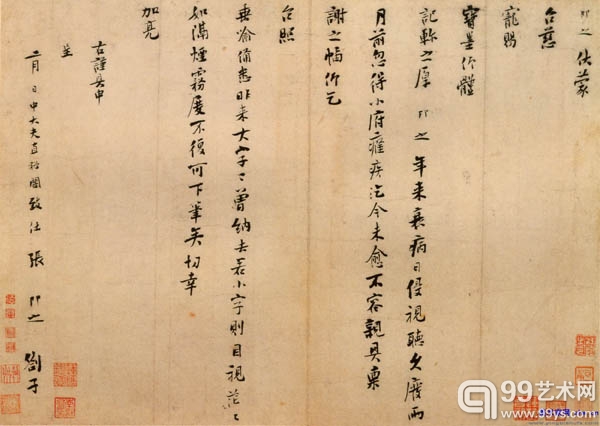 即之 伏蒙
台慈
寵賜
寶墨仰體
記軫之厚 即之 年来衰病日侵視聽久廢兩
月前忽得小府癃疾迄今未愈不容親具稟
謝之幅仰乞
台照
垂喻備悉昨来大字曾納去若小字則目視茫々
如隔煙霧不復可下筆矣切幸
加亮
右謹具申
呈
二月 日中大夫直秘閣致仕張 即之 劄子
99艺术网
www.99ys.com